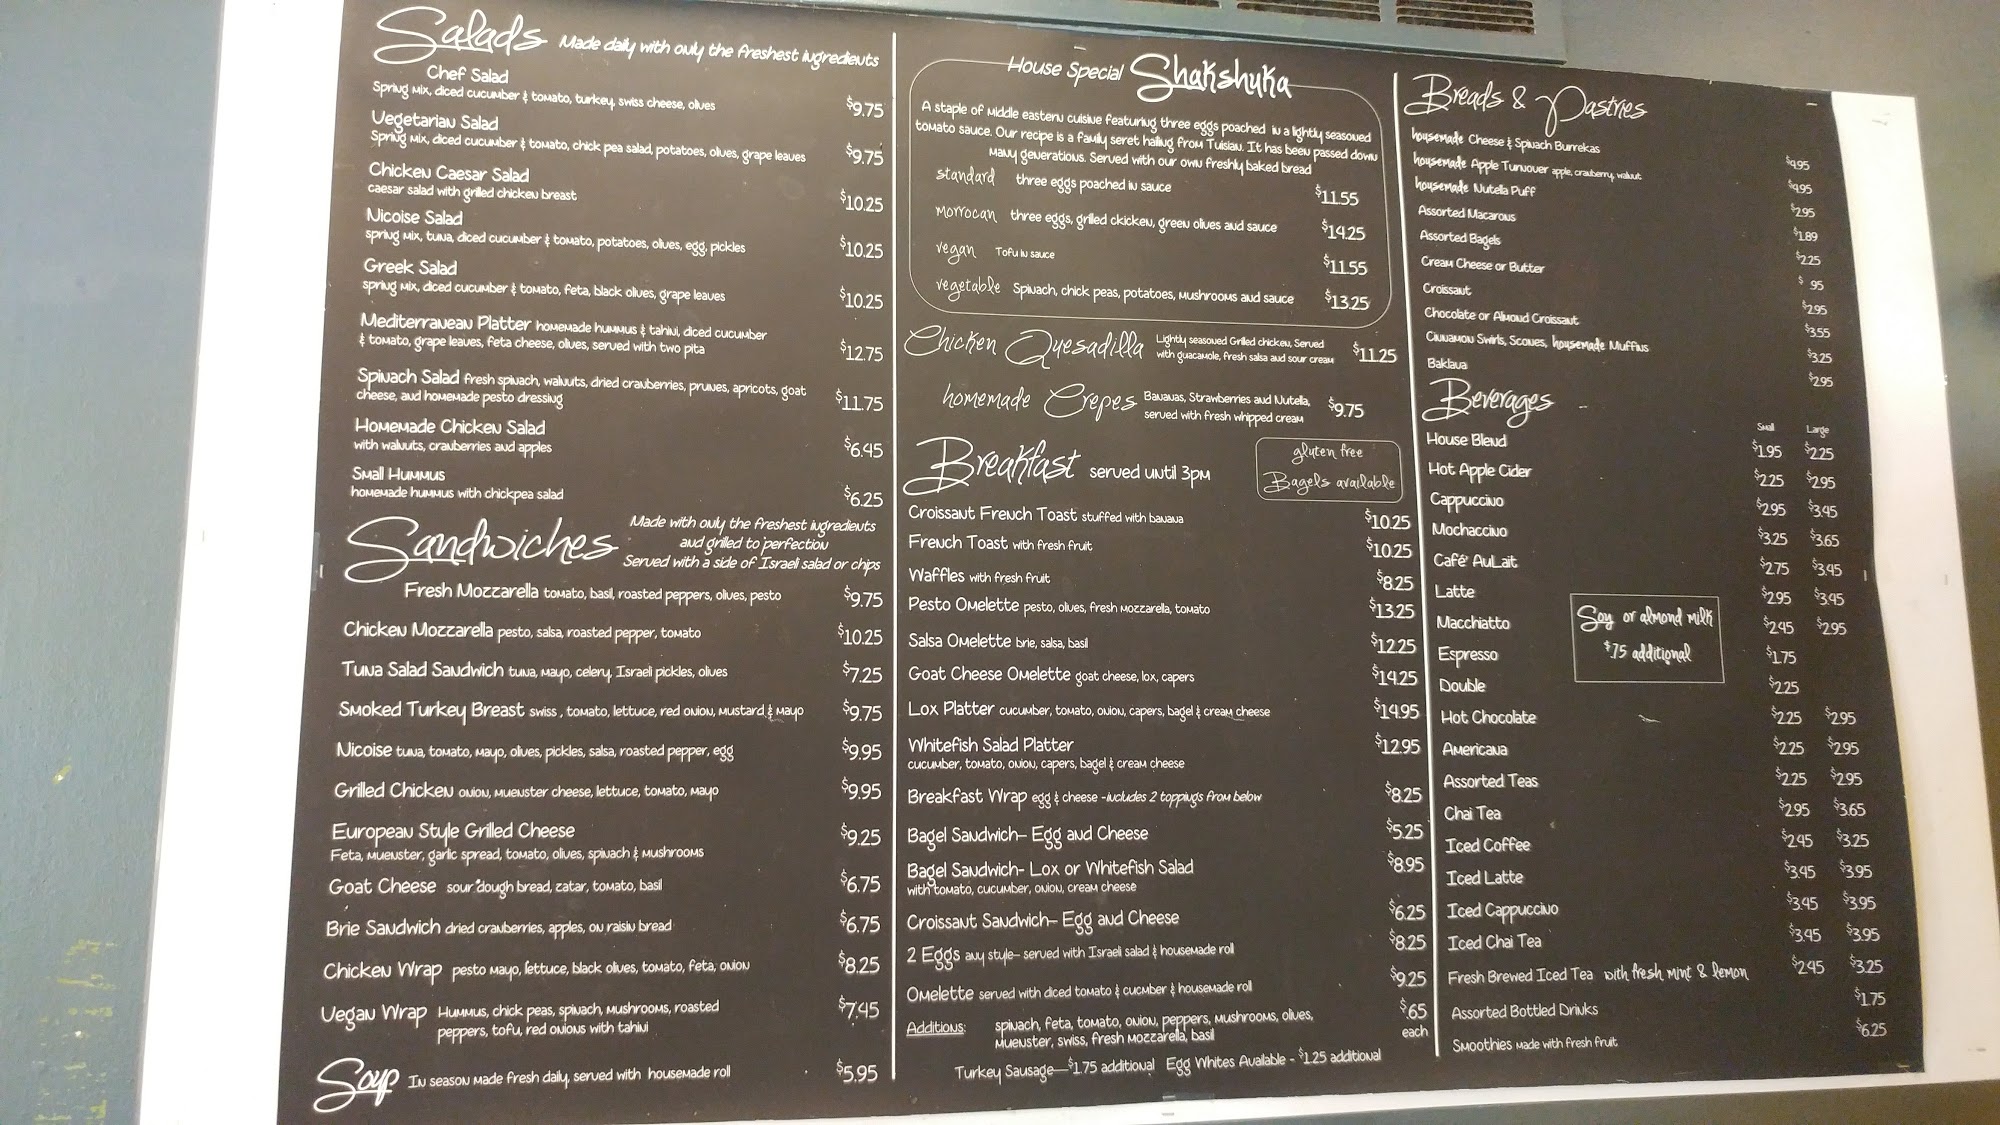 Salads Made daily with only the freshest ingredients
Chef Salad
Spring Mix, diced cucumber & tomato, turkey, swiss cheese, olives $9.75
Vegetarian Salad
Spring Mix, diced cucumber & tomato, chick pea salad, potatoes, olives, grape leaves $9.75
Chicken Caesar Salad
caesar salad with grilled chicken breast $10.25
Nicoise Salad
spring mix, tuna, diced cucumber & tomato, potatoes, olives, egg, pickles $10.25
Greek Salad
spring mix, diced cucumber & tomato, feta, black olives, grape leaves $10.25
Mediterranean Platter homemade hummus & tahini, diced cucumber
& tomato, grape leaves, feta cheese, olives, served with two pita $12.75
Spinach Salad fresh spinach, walnuts, dried cranberries, prunes, apricots, goat
cheese, and homemade pesto dressing $11.75
Homemade Chicken Salad
with walnuts, cranberries and apples $6.45
Small Hummus
homemade hummus with chickpea salad $6.25
Sandwiches Made with only the freshest ingredients
and grilled to perfection
Served with a side of Israeli salad or chips
Fresh Mozzarella tomato, basil, roasted peppers, olives, pesto $9.75
Chicken Mozzarella pesto, salsa, roasted pepper, tomato $10.25
Tuna Salad Sandwich tuna, mayo, celery, Israeli pickles, olives $7.25
Smoked Turkey Breast swiss, tomato, lettuce, red onion, mustard & mayo $9.75
Nicoise tuna, tomato, mayo, olives, pickles, salsa, roasted pepper, egg $9.95
Grilled Chicken onion, muenster cheese, lettuce, tomato, mayo $9.95
European Style Grilled Cheese $9.25
Feta, muenster, garlic spread, tomato, olives, spinach & mushrooms
Goat Cheese sour dough bread, zatar, tomato, basil $6.75
Brie Sandwich dried cranberries, apples, on raisin bread $6.75
Chicken Wrap pesto mayo, lettuce, black olives, tomato, feta, onion $8.25
Vegan Wrap Hummus, chick peas, spinach, mushrooms, roasted $7.45
peppers, tofu, red onions with tahini
Soup In season made fresh daily, served with housemade roll $5.95
House Special Shakshuka
A staple of middle eastern cuisine featuring three eggs poached in a lightly seasoned
tomato sauce. Our recipe is a family seret hailing from Tuisian. It has been passed down
many generations. Served with our own freshly baked bread
standard three eggs poached in sauce $11.55
morrocan three eggs, grilled ckicken, green olives and sauce $14.25
vegan Tofu in sauce $11.55
vegetable Spinach, chick peas, potatoes, mushrooms and sauce $13.25
Chicken Quesadilla Lightly seasoned Grilled chicken, Served
with guacamole, fresh salsa and sour cream $11.25
homemade Crepes Bananas, Strawberries and Nutella,
served with fresh whipped cream $9.75
Breakfast served until 3pm
gluten free
Bagels available
Croissant French Toast stuffed with banana $10.25
French Toast with fresh fruit $10.25
Waffles with fresh fruit $8.25
Pesto Omelette pesto, olives, fresh mozzarella, tomato $13.25
Salsa Omelette brie, salsa, basil $12.25
Goat Cheese Omelette goat cheese, lox, capers $14.25
Lox Platter cucumber, tomato, onion, capers, bagel & cream cheese $14.95
Whitefish Salad Platter $12.95
cucumber, tomato, onion, capers, bagel & cream cheese
Breakfast Wrap egg & cheese -includes 2 toppings from below $8.25
Bagel Sandwich- Egg and Cheese $5.25
Bagel Sandwich- Lox or Whitefish Salad $8.95
with tomato, cucumber, onion, cream cheese
Croissant Sandwich- Egg and Cheese $6.25
2 Eggs any style- served with Israeli salad & housemade roll $8.25
Omelette served with diced tomato & cucmber & housemade roll $9.25
Additions: spinach, feta, tomato, onion, peppers, mushrooms, olives, $.65
muenster, swiss, fresh mozzarella, basil each
Turkey Sausage—$1.75 additional Egg Whites Available - $1.25 additional
Breads & Pastries
housemade Cheese & Spinach Burrekas $4.95
housemade Apple Turnover apple, cranberry, walnut $4.95
housemade Nutella Puff $2.95
Assorted Macarons $1.89
Assorted Bagels $2.25
Cream Cheese or Butter $ .95
Croissant $2.95
Chocolate or Almond Croissant $3.55
Cinnamon Swirls, Scones, housemade Muffins $3.25
Baklava $2.95
Beverages
Small Large
House Blend $1.95 $2.25
Hot Apple Cider $2.25 $2.95
Cappuccino $2.95 $3.45
Mochaccino $3.25 $3.65
Café' AuLait $2.75 $3.45
Latte $2.95 $3.45
Macchiatto $2.45 $2.95
Espresso $1.75
Double $2.25
Soy or almond milk
$.75 additional
Hot Chocolate $2.25 $2.95
Americana $2.25 $2.95
Assorted Teas $2.25 $2.95
Chai Tea $2.95 $3.65
Iced Coffee $2.45 $3.25
Iced Latte $3.45 $3.95
Iced Cappuccino $3.45 $3.95
Iced Chai Tea $3.45 $3.95
Fresh Brewed Iced Tea with fresh mint & lemon $2.45 $3.25
Assorted Bottled Drinks $1.75
Smoothies made with fresh fruit $6.25